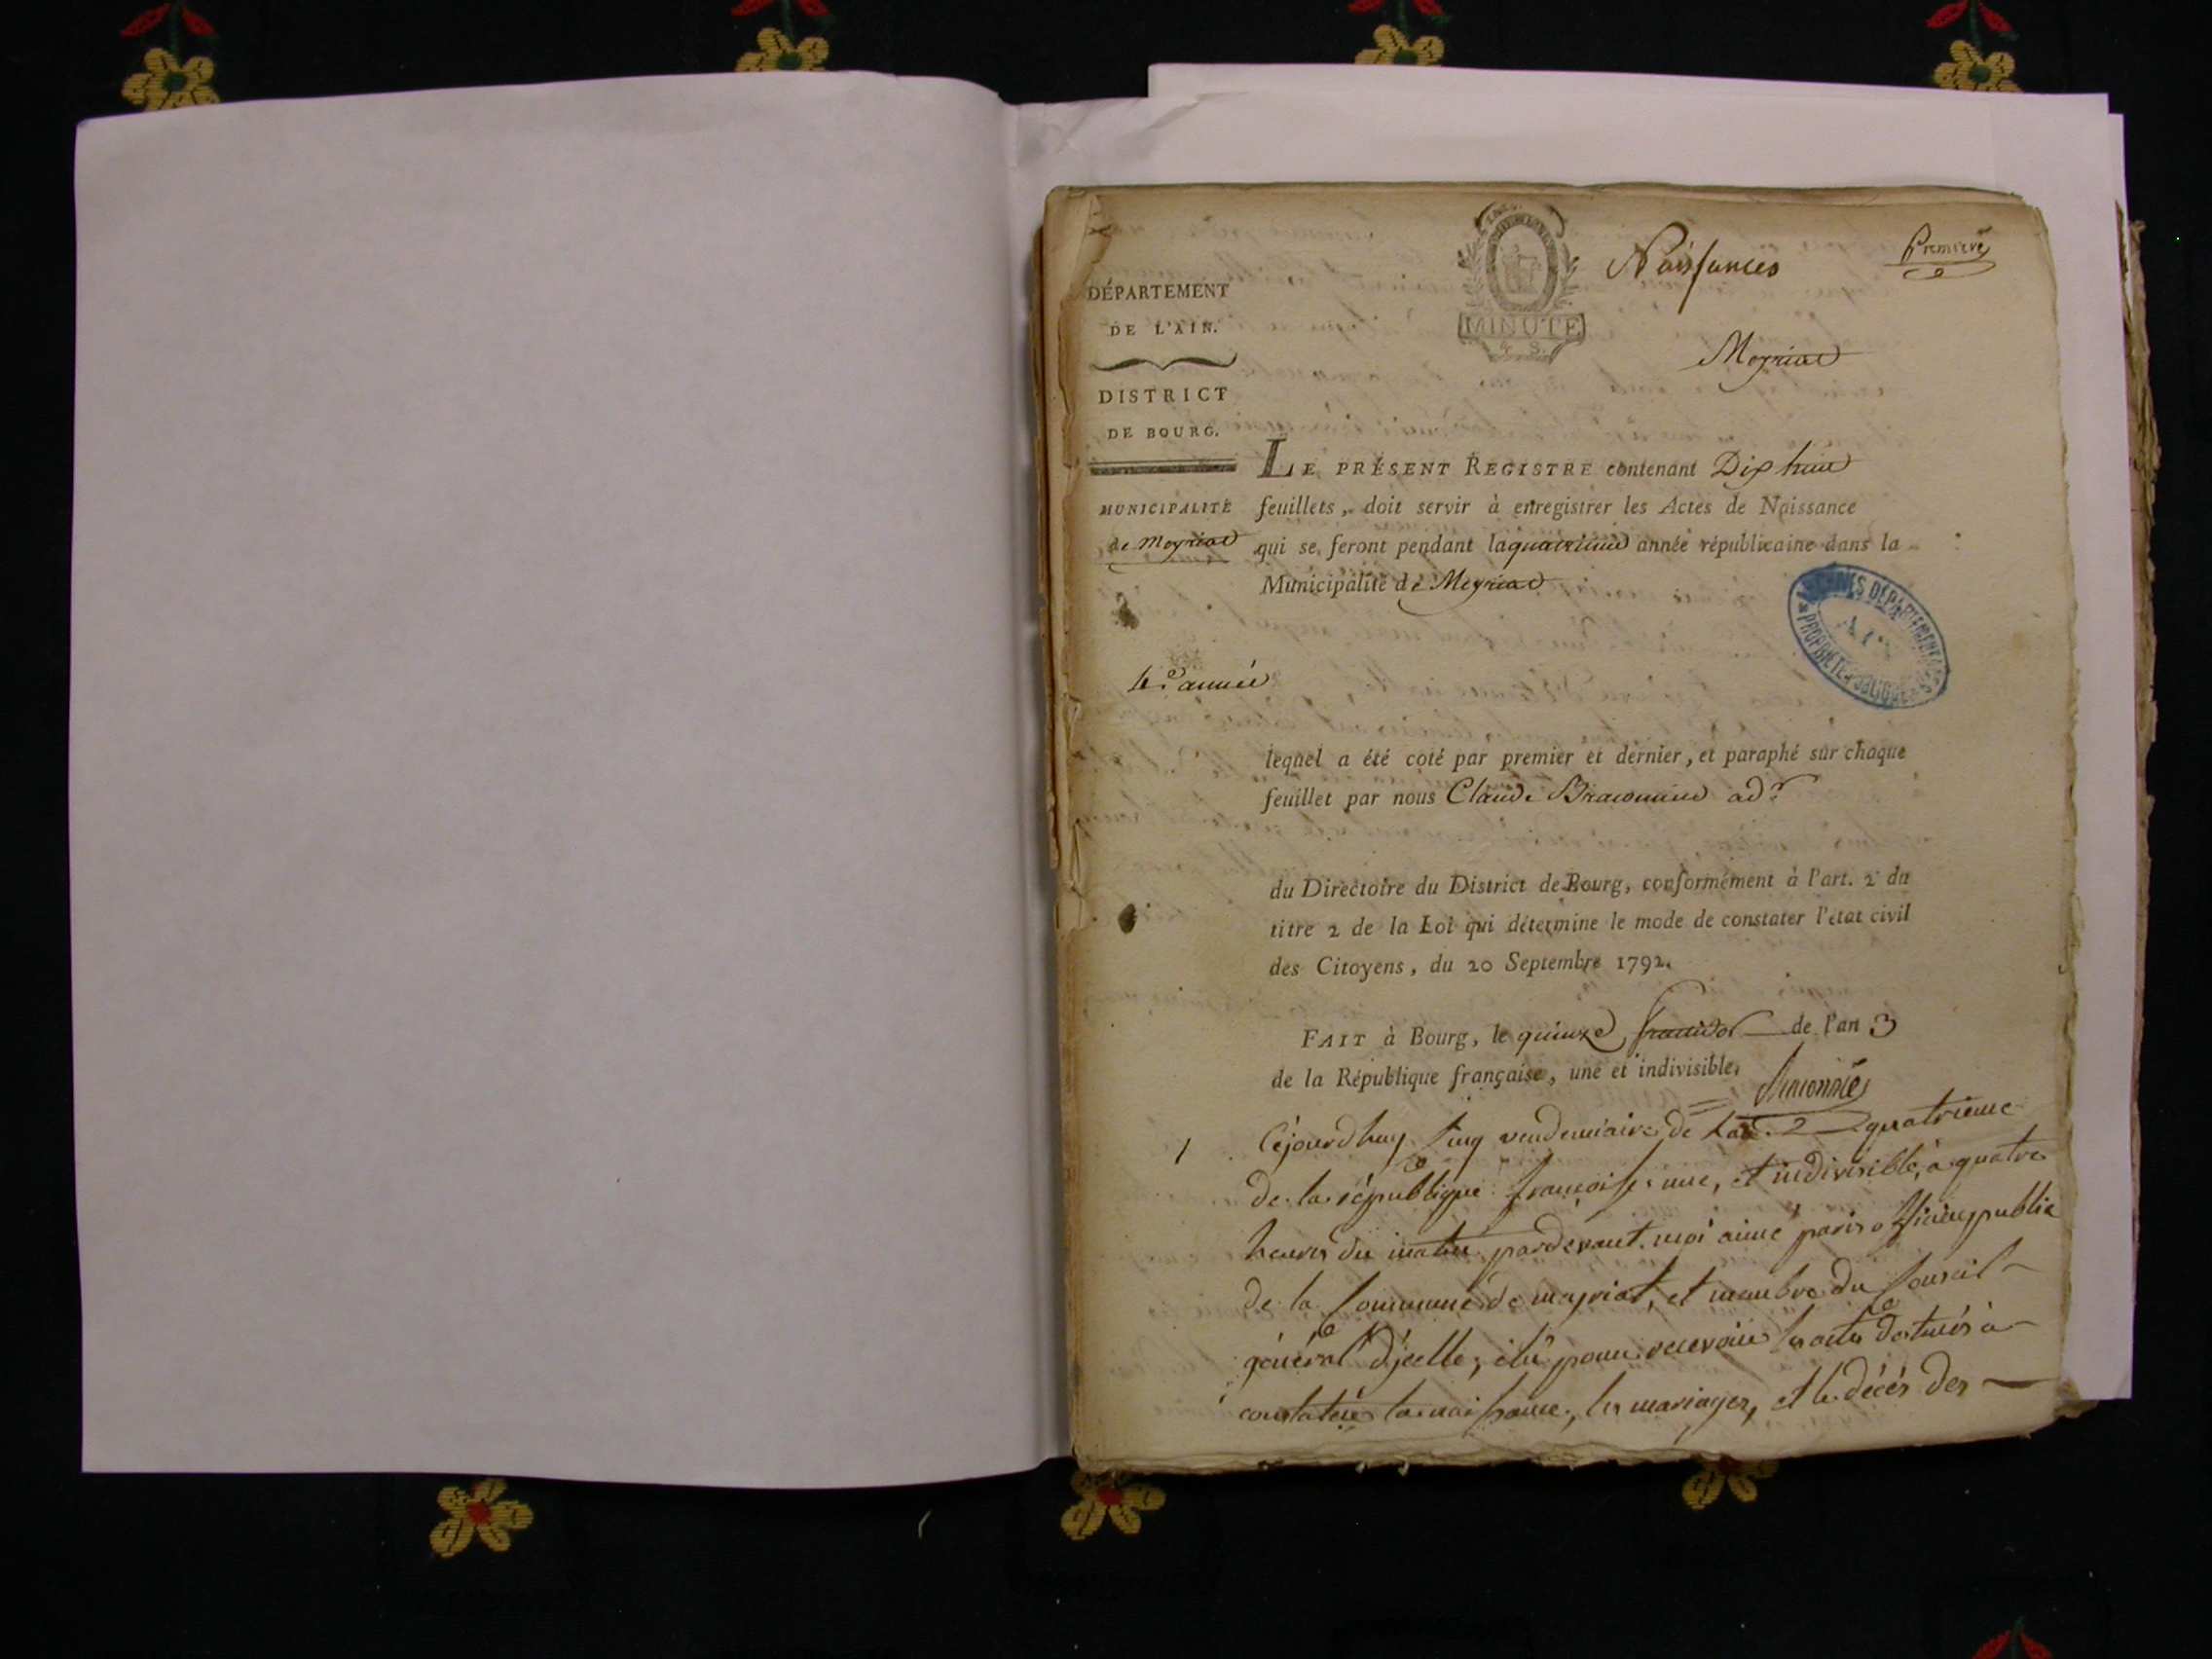 Naissances
Premiere
MINUTE
4 S.
Meyriat
DÉPARTEMENT
DE L'AIN.
DISTRICT
DE BOURG.
MUNICIPALITÉ
de Meyriat
4e. année
LE PRÉSENT REGISTRE contenant Dix huit
feuillets, doit servir à enregistrer les Actes de Naissance
qui se feront pendant la quatrieme année républicaine dans la
Municipalité de Meyriat
ARCHIVES DÉPARTEMENTALES
AIN
PROPRIÉTÉ PUBLIQUE
lequel a été coté par premier et dernier, et paraphé sur chaque
feuillet par nous Claude adr
du Directoire du District de Bourg, conformément à l'art. 2 du
titre 2 de la Loi qui détermine le mode de constater l'état civil
des Citoyens, du 20 Septembre 1792.
FAIT à Bourg, le quinze fructidor de l'an 3
de la République française, une et indivisible.
1
Cejourdhuy sinq vendemiaire de Lan quatrieme
de la république francoisse une, et indivisible, a quatre
heures du matin pardevant moi aimé paris officier public
de la Commune de mayriat, et membre du Conseil
général d'jcelle, élu pour recevoir les actes destinés à
constater la naissance, les mariages, et le décès des